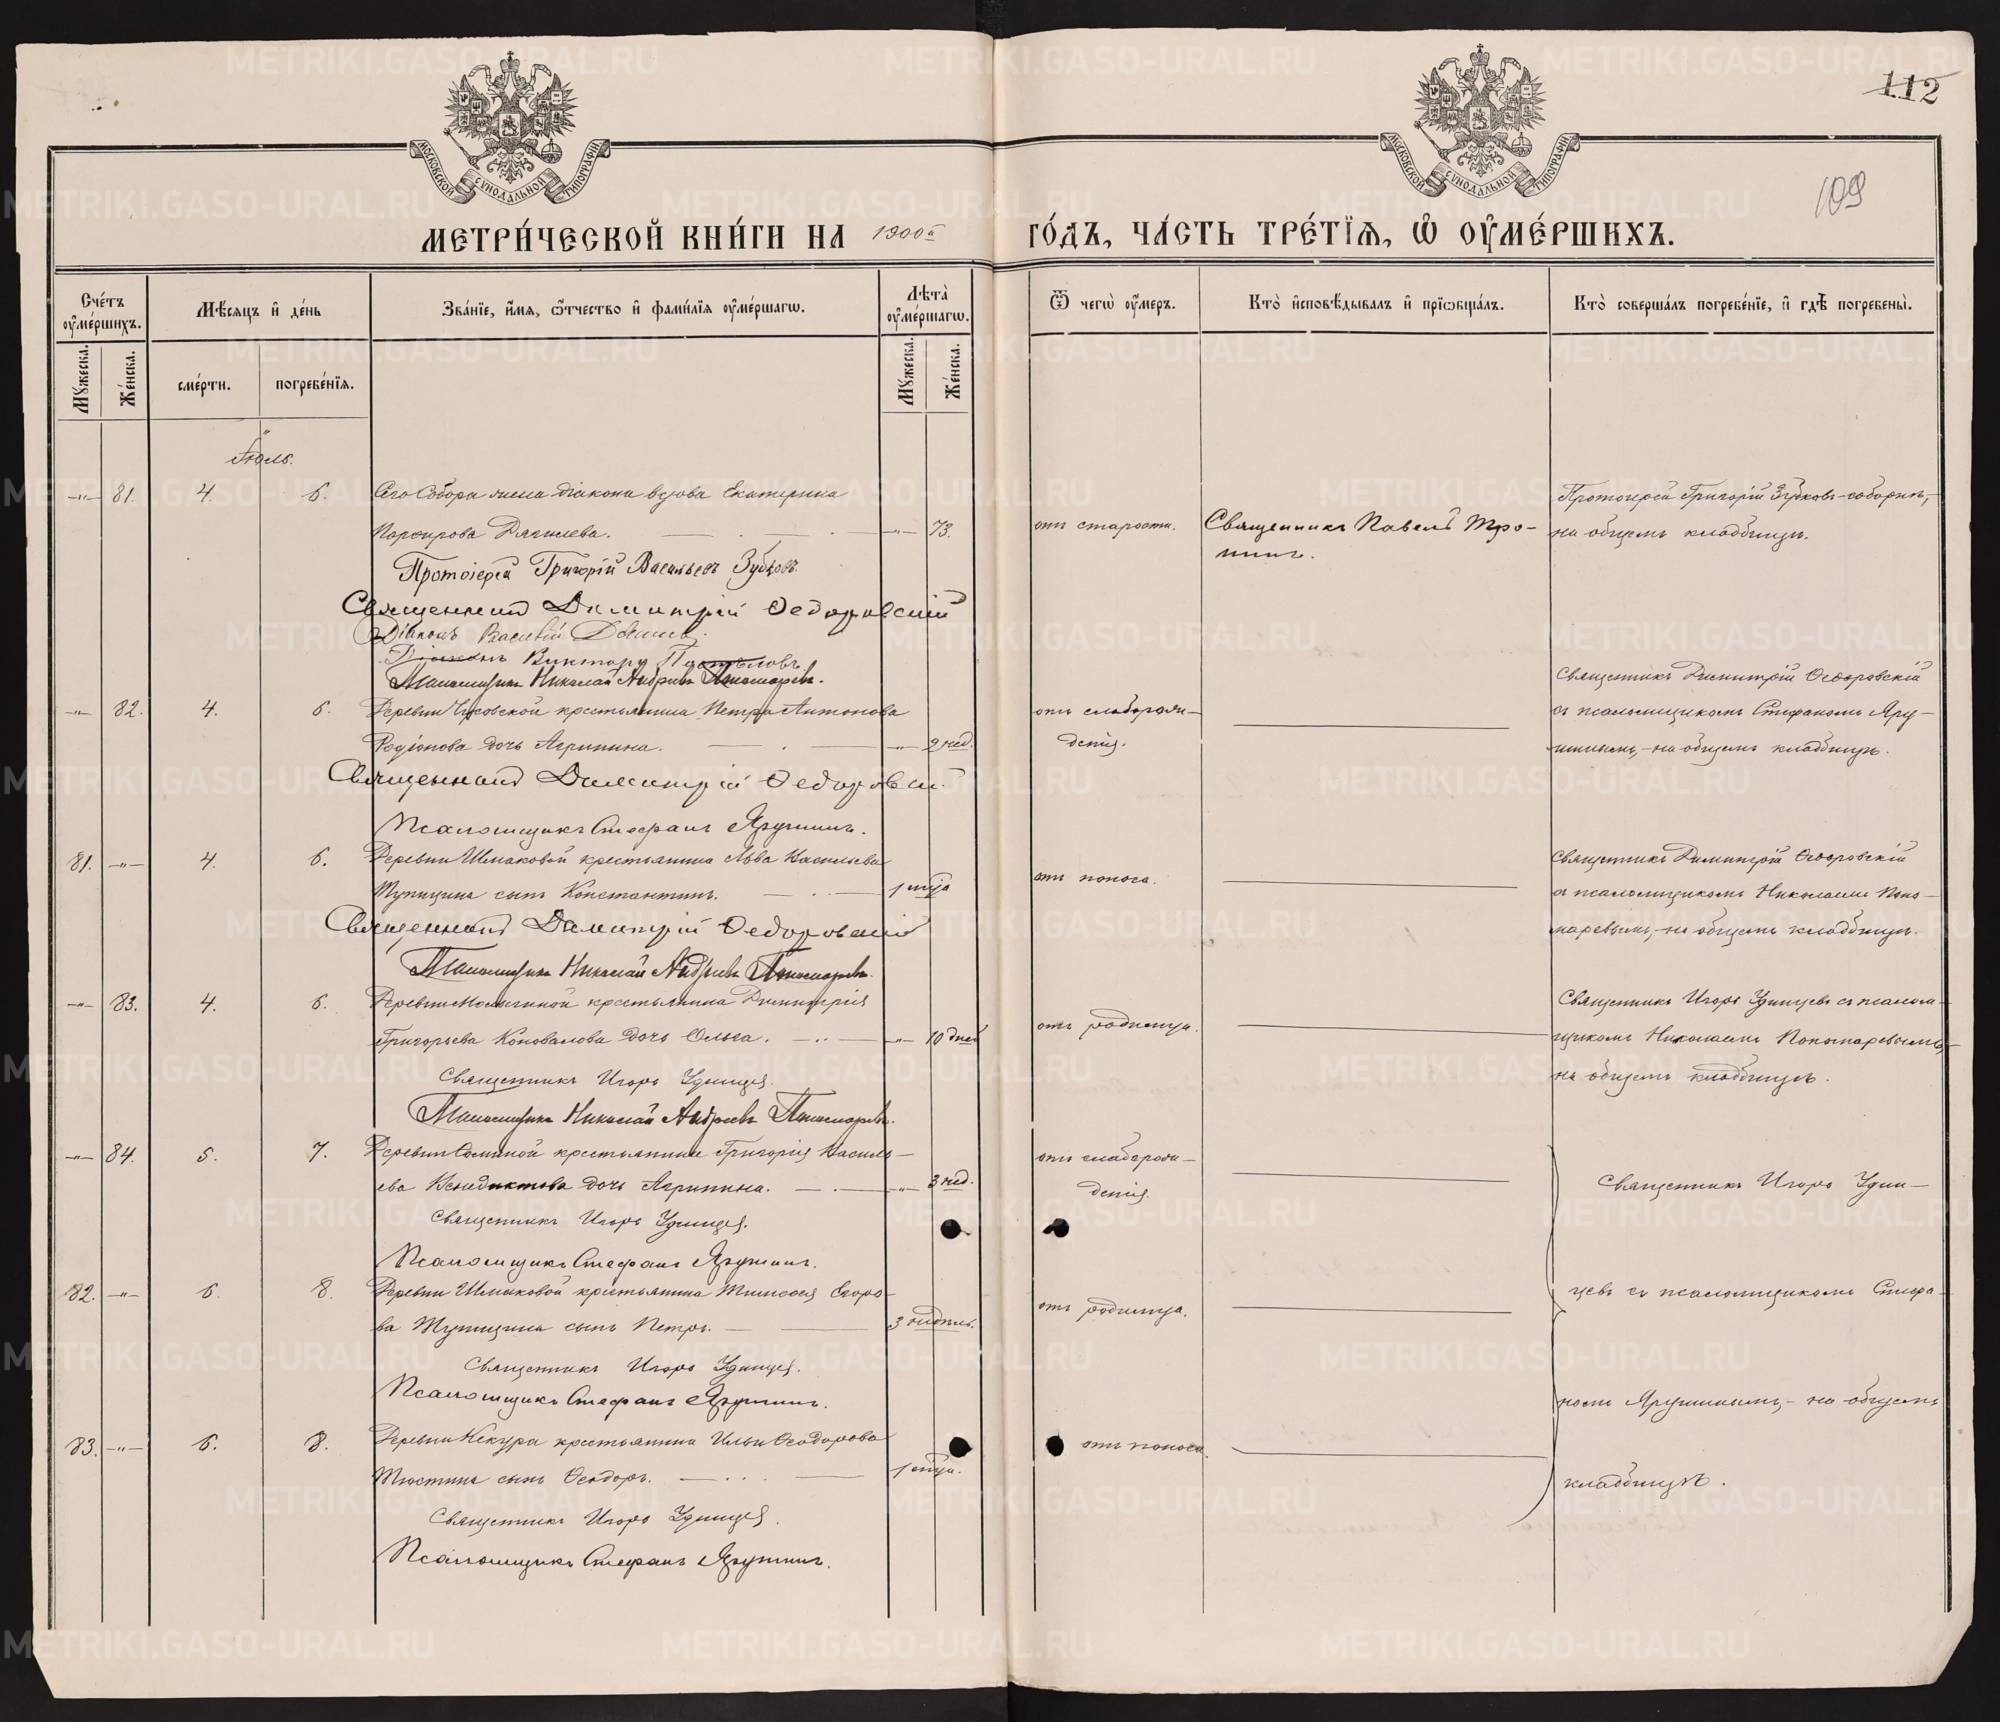 112
109
МОСКОВСКОЙ СѴНОДАЛЬНОЙ ТИПОГРАФІИ
МОСКОВСКОЙ СѴНОДАЛЬНОЙ ТИПОГРАФІИ
МЕТРИ́ЧЕСКОЙ КНИ́ГИ НА 1900й ГО́ДЪ, ЧА́СТЬ ТРЕ́ТІЯ, Ѡ҆ ОУ҆МЕ́РШИХЪ.
Сче́тъ оу҆ме́ршихъ.
Мꙋ́жеска.
Же́нска.
Мѣ́сяцъ и҆ де́нь
сме́рти.
погребе́нїя.
Зва́нїе, и҆́мя, ѻ҆́тчество и҆ фами́лїя оу҆ме́ршагѡ.
Лѣта̀ оу҆ме́ршагѡ.
Мꙋ́жеска.
Же́нска.
Ѿ чегѡ̀ оу҆́меръ.
Кто̀ и҆сповѣ́дывалъ и҆ прїѡбща́лъ.
Кто̀ соверша́лъ погребе́нїе, и҆ гдѣ̀ погребены̀.
Іюль.
-„- 81. 4. 6. Сего Собора жена діакона вдова Екатерина
Порфирова Дягилева. -„- 73. отъ старости. Священникъ Павелъ Тро-
нинъ. Протоіерей Григорій Зубковъ соборнѣ,
на общемъ кладбищѣ.
Протоіерей Григорій Васильевъ Зубковъ.
Священникъ Димитрій Ѳедоровскій
Діаконъ Василій
Діаконъ Викторъ Поспѣловъ.
Псаломщикъ Николай Андреевъ Пономаревъ.
-„- 82. 4. 6. Деревни Чусовской крестьянина Петра Антонова
Родіонова дочь Агрипина. -„- 2 нед. отъ слаборож-
денія. Священникъ Димитрій Ѳедоровскій
съ псаломщикомъ Стефаномъ Яру-
шинымъ,-на общемъ кладбищѣ.
Священникъ Димитрій Ѳедоровскій.
Псаломщикъ Стефанъ Ярушинъ.
81. -„- 4. 6. Деревни Шмаковой крестьянина Льва Васильева
Тупицына сынъ Константинъ. 1 м-ца отъ поноса. Священникъ Димитрій Ѳедоровскій
съ псаломщикомъ Николаемъ Поно-
маревымъ,-на общемъ кладбищѣ.
Священникъ Димитрій Ѳедоровскій
Псаломщикъ Николай Андреевъ Пономаревъ.
-„- 83. 4. 6. Деревни крестьянина Димитрія
Григорьева Коновалова дочь Ольга. -„- 10 дней отъ родимца. Священникъ Игорь Удинцевъ съ псалом-
щикомъ Николаемъ Пономаревымъ,-
на общемъ кладбищѣ.
Священникъ Игорь Удинцевъ.
Псаломщикъ Николай Андреевъ Пономаревъ.
-„- 84. 5. 7. Деревни крестьянина Григорія Василь-
ева Бенедиктова дочь Агрипина. -„- 3 нед. отъ слаборож-
денія. Священникъ Игорь Удин-
Священникъ Игорь Удинцевъ.
Псаломщикъ Стефанъ Ярушинъ.
82. -„- 6. 8. Деревни Шмаковой крестьянина Тимофея Егоро-
ва Тупицына сынъ Петръ. 3 недѣль. отъ родимца. цевъ съ псаломщикомъ Стефа-
Священникъ Игорь Удинцевъ.
Псаломщикъ Стефанъ Ярушинъ. номъ Ярушинымъ,- на общемъ
83. -„- 6. 8. Деревни Кекура крестьянина Ильи Ѳеодорова
Тюстина сынъ Ѳеодоръ. 1 м-ца. отъ поноса кладбищѣ.
Священникъ Игорь Удинцевъ.
Псаломщикъ Стефанъ Ярушинъ.
METRIKI.GASO-URAL.RU